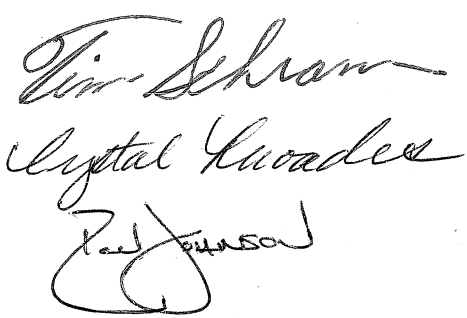 Tim Schram
Crystal Rhoades
Rod Johnson